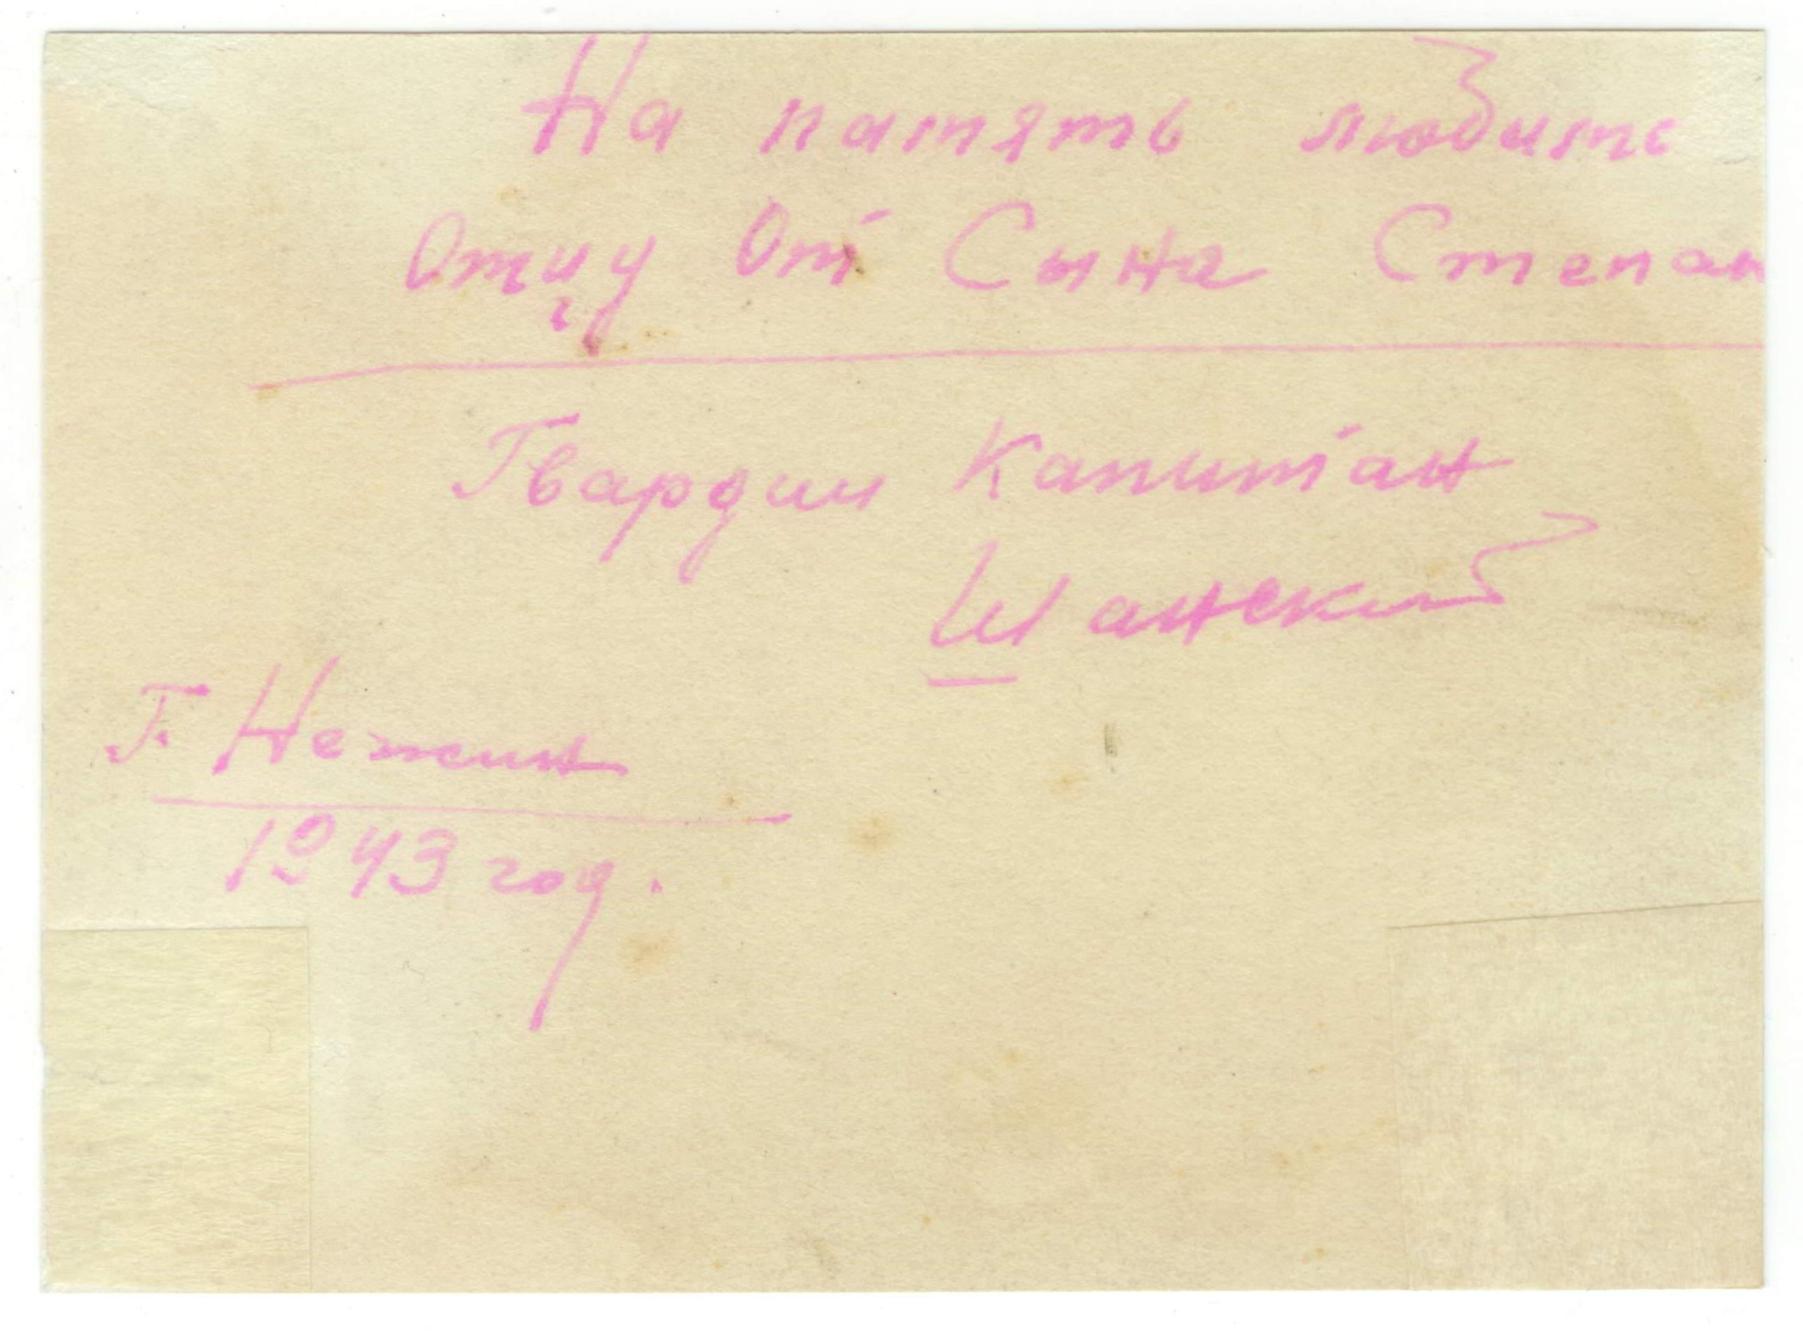 На память любите
Отцу От Сына Степан
Гвардии Капитан
Шанский
Г. Нежин
1943 год.